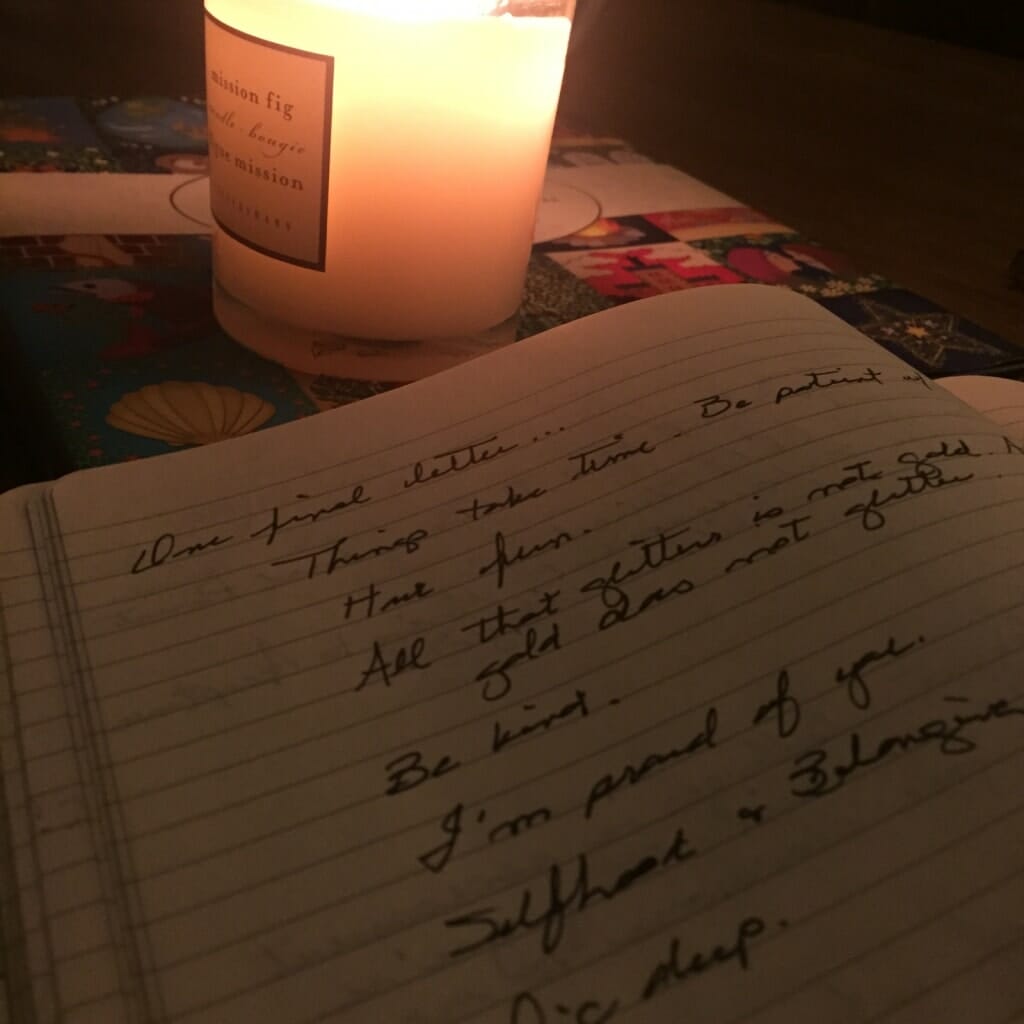 mission fig
bougie
mission
One final letter...
Things take time. Be patient
Have fun.
All that glitters is not gold.
gold does not glitter.
Be kind.
I'm proud of you.
Selfhood &
Dig deep.